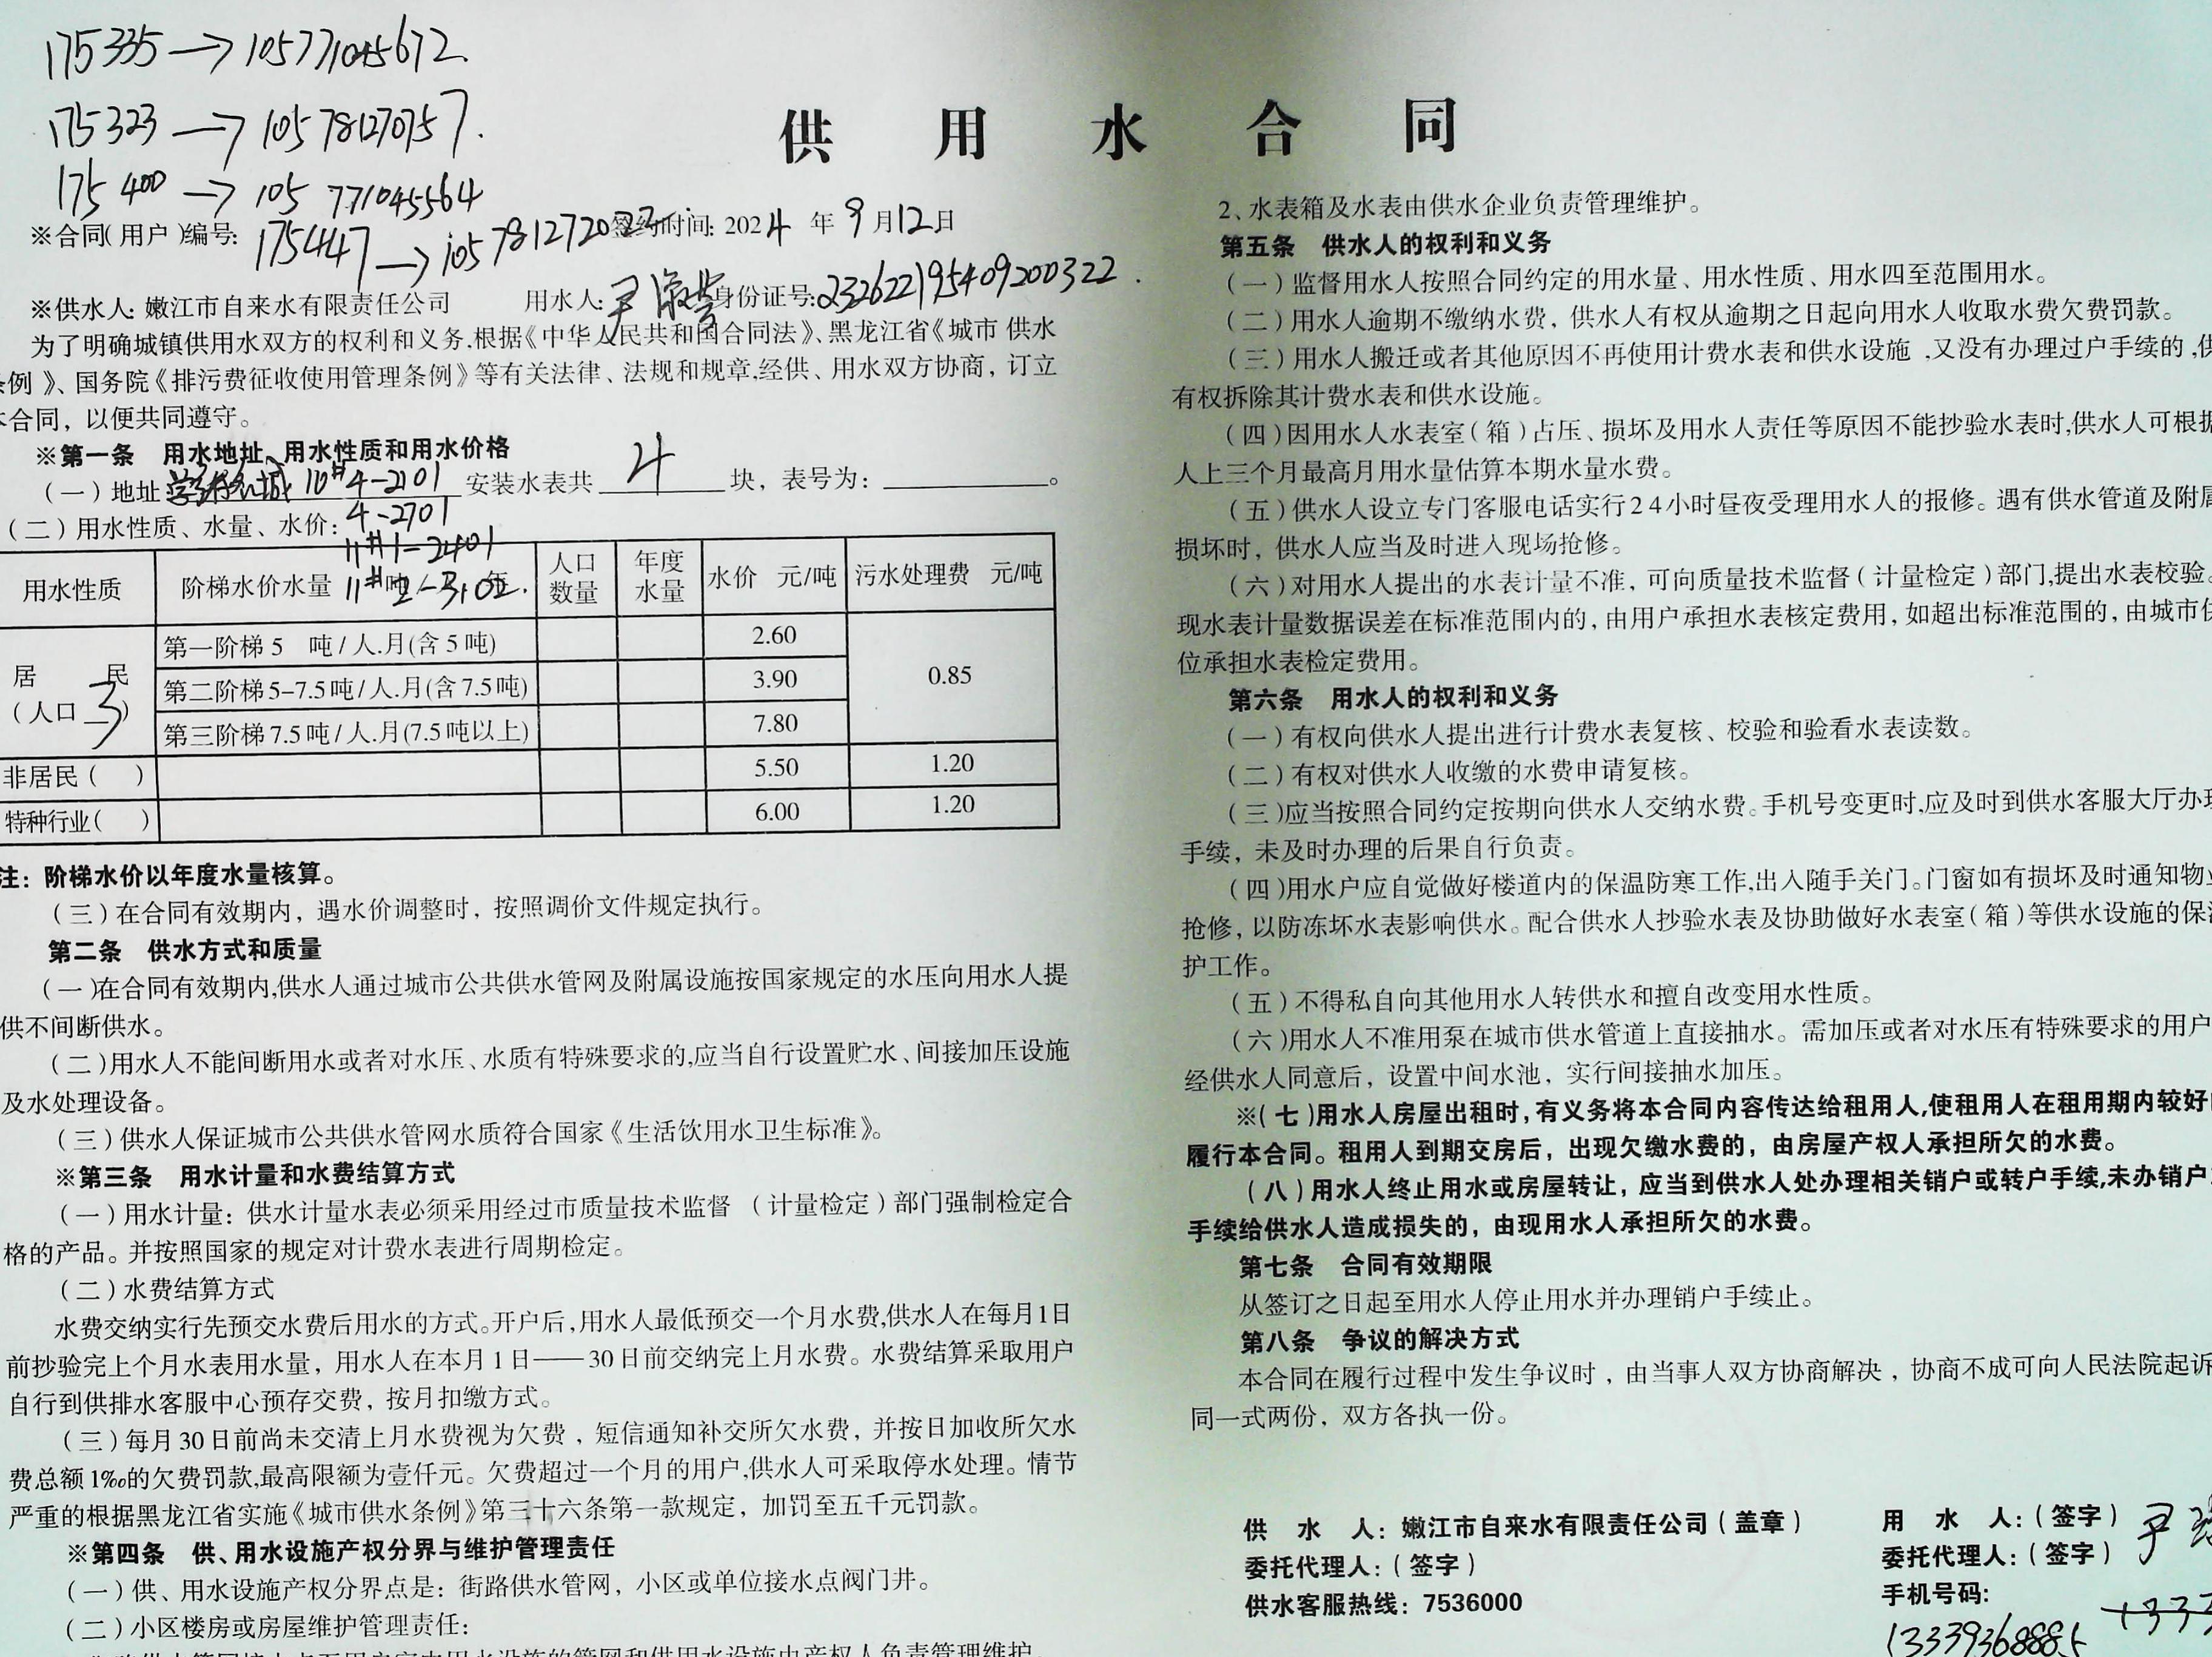 175335→105771045672.
175323→105781270757.
175400→105 771045564
供用水合同
※合同(用户)编号: 175447→105781272022 签约时间: 2024年9月12日
※供水人: 嫩江市自来水有限责任公司 用水人: 尹 身份证号: 232622195409200322.
为了明确城镇供用水双方的权利和义务,根据《中华人民共和国合同法》、黑龙江省《城市供水
条例》、国务院《排污费征收使用管理条例》等有关法律、法规和规章,经供、用水双方协商，订立
本合同，以便共同遵守。
※第一条 用水地址、用水性质和用水价格
(一)地址 城 10#4-2101 安装水表共 4 块，表号为: 。
4-2701
(二)用水性质、水量、水价:
11#1-2401
用水性质 阶梯水价水量 人口数量 年度水量 水价 元/吨 污水处理费 元/吨
居民 (人口 3) 第一阶梯 5 吨/人.月(含5吨) 2.60 0.85
第二阶梯 5-7.5吨/人.月(含7.5吨) 3.90
第三阶梯 7.5吨/人.月(7.5吨以上) 7.80
非居民( ) 5.50 1.20
特种行业( ) 6.00 1.20
注：阶梯水价以年度水量核算。
(三)在合同有效期内，遇水价调整时，按照调价文件规定执行。
第二条 供水方式和质量
(一)在合同有效期内,供水人通过城市公共供水管网及附属设施按国家规定的水压向用水人提
供不间断供水。
(二)用水人不能间断用水或者对水压、水质有特殊要求的,应当自行设置贮水、间接加压设施
及水处理设备。
(三)供水人保证城市公共供水管网水质符合国家《生活饮用水卫生标准》。
※第三条 用水计量和水费结算方式
(一)用水计量：供水计量水表必须采用经过市质量技术监督 (计量检定)部门强制检定合
格的产品。并按照国家的规定对计费水表进行周期检定。
(二)水费结算方式
水费交纳实行先预交水费后用水的方式。开户后,用水人最低预交一个月水费,供水人在每月1日
前抄验完上个月水表用水量，用水人在本月1日——30日前交纳完上月水费。水费结算采取用户
自行到供排水客服中心预存交费，按月扣缴方式。
(三)每月30日前尚未交清上月水费视为欠费，短信通知补交所欠水费，并按日加收所欠水
费总额1‰的欠费罚款,最高限额为壹仟元。欠费超过一个月的用户,供水人可采取停水处理。情节
严重的根据黑龙江省实施《城市供水条例》第三十六条第一款规定，加罚至五千元罚款。
※第四条 供、用水设施产权分界与维护管理责任
(一)供、用水设施产权分界点是：街路供水管网，小区或单位接水点阀门井。
(二)小区楼房或房屋维护管理责任:
2、水表箱及水表由供水企业负责管理维护。
第五条 供水人的权利和义务
(一)监督用水人按照合同约定的用水量、用水性质、用水四至范围用水。
(二)用水人逾期不缴纳水费，供水人有权从逾期之日起向用水人收取水费欠费罚款。
(三)用水人搬迁或者其他原因不再使用计费水表和供水设施,又没有办理过户手续的,供
有权拆除其计费水表和供水设施。
(四)因用水人水表室(箱)占压、损坏及用水人责任等原因不能抄验水表时,供水人可根据
人上三个月最高月用水量估算本期水量水费。
(五)供水人设立专门客服电话实行24小时昼夜受理用水人的报修。遇有供水管道及附属
损坏时，供水人应当及时进入现场抢修。
(六)对用水人提出的水表计量不准，可向质量技术监督(计量检定)部门,提出水表校验。
现水表计量数据误差在标准范围内的,由用户承担水表核定费用,如超出标准范围的,由城市供
位承担水表检定费用。
第六条 用水人的权利和义务
(一)有权向供水人提出进行计费水表复核、校验和验看水表读数。
(二)有权对供水人收缴的水费申请复核。
(三)应当按照合同约定按期向供水人交纳水费。手机号变更时,应及时到供水客服大厅办理
手续，未及时办理的后果自行负责。
(四)用水户应自觉做好楼道内的保温防寒工作,出入随手关门。门窗如有损坏及时通知物业
抢修,以防冻坏水表影响供水。配合供水人抄验水表及协助做好水表室(箱)等供水设施的保温
护工作。
(五)不得私自向其他用水人转供水和擅自改变用水性质。
(六)用水人不准用泵在城市供水管道上直接抽水。需加压或者对水压有特殊要求的用户
经供水人同意后，设置中间水池，实行间接抽水加压。
※(七)用水人房屋出租时,有义务将本合同内容传达给租用人,使租用人在租用期内较好
履行本合同。租用人到期交房后，出现欠缴水费的，由房屋产权人承担所欠的水费。
(八)用水人终止用水或房屋转让，应当到供水人处办理相关销户或转户手续,未办销户
手续给供水人造成损失的，由现用水人承担所欠的水费。
第七条 合同有效期限
从签订之日起至用水人停止用水并办理销户手续止。
第八条 争议的解决方式
本合同在履行过程中发生争议时，由当事人双方协商解决，协商不成可向人民法院起诉
同一式两份，双方各执一份。
供水人: 嫩江市自来水有限责任公司(盖章)
委托代理人:(签字)
供水客服热线: 7536000
用水人:(签字) 尹
委托代理人:(签字)
手机号码:
13339368885